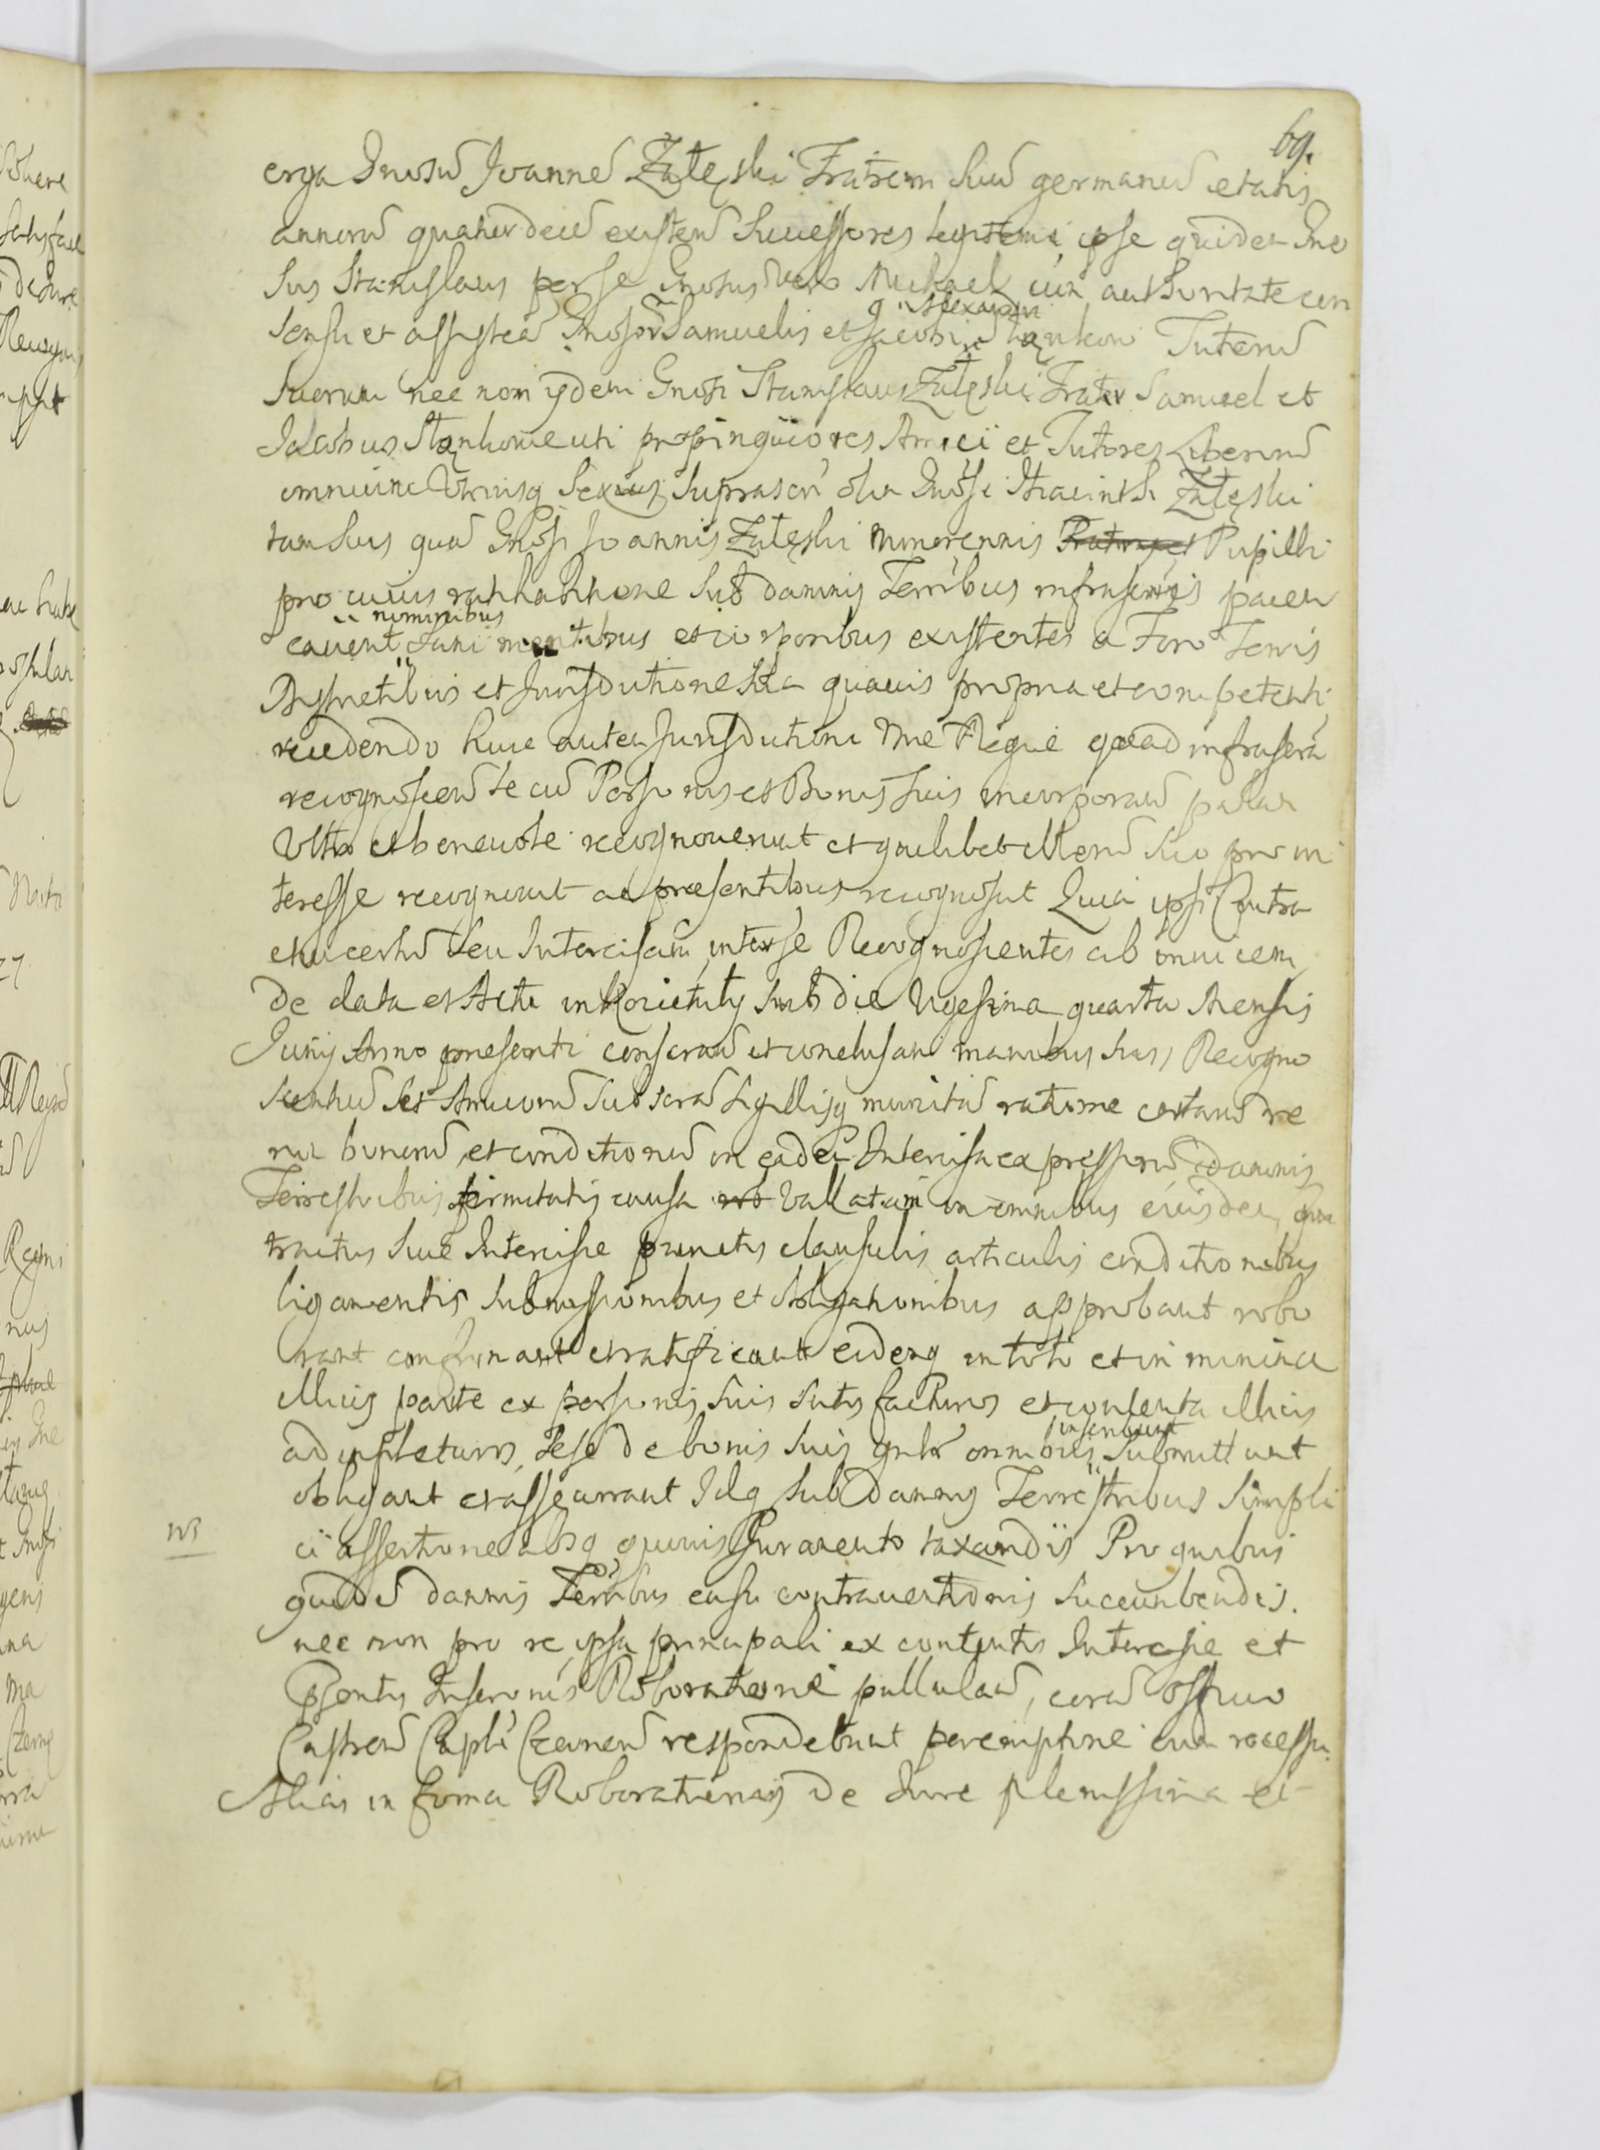 69.
erga Gnosū Joannē Załęski Fratrem suū germanū etatis
annorū quatuordeci existeñ Successores legitemi, ipse quidem Gno
sus Stanislaus per se Gnosus vero Michael cum authoritate con
sensu et assisteã Gnosor Samuelis et Jacobi Alexandri Tutorū
suorum nec non ijdem Gnosi Stanislaus Załęski Frater Samuel et
Jacobus uti propinquiores Amici et Tutores Liberorū
omnium Utriusq Sexus suprascri olim Gnosi Hiacinthi Załęski
tam suo quā Gnosi Joannis Załęski Minorennis Pupilli
pro cuius rathabitione sub damnis Terribus infrascriptis
cavent nominibus Sani mentibus et corporibus existentes a Foro Terris
Districtibus et Jurisdictione sua quavis propria et competenti
recedendo huic autem Jurisdictioni quoad infrascri
recognoscen se cū Personis et Bonis suis incorporañ
Ultro et benevole recognoverunt et quilibet illorū suo pro in
teresse recognovit ac presentibus recognoscut Quia ipsi Contra
seu Intercisam, inter se Recognoscentes ab invicem
De data et Actu in sub die Vigesima quarta Mensis
Junij Anno presenti conscrañ et conclusam manibus suis Recogno
scentiū et Amicorū subscrañ sigillisq munitā ratione certarū re
rum bonorū et conditionū in eadem Intercisa expressorū Damnis
Terrestribus firmitatis causa vallatam in omnibus eiusdem Con
tractus sive Intercisie punctis clausulis articulis conditionibus
ligamentis submissionibus et obligationibus approbant robo
rant confirmant et ratificant eidemq in toto et in minima
illius parte ex personis suis satisfacturos et contenta illius
adimpleturos, sese de bonis suis gnlr omnibus inscribunt submittunt
obligant et assecurant Idq sub Damnis Terrestribus simpli
NB
ci assertione absq quovis Juramento taxandis Pro quibus
quidē damnis Terribus casu contraventionis succumbendis.
nec non pro re ipsa principali ex contentis Intercisie et
pñtis Roborationē pullulañ, corā officio
Castreñ respondebunt peremptorie cum recessu
Alias in forma Roborationis de Jure plenissima et